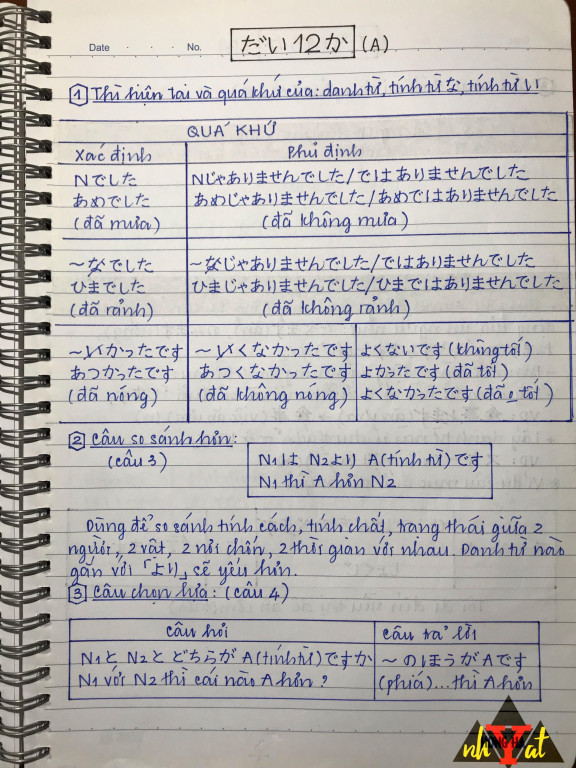 Date . . . No.
だい12か (A)
1 Thì hiện tại và quá khứ của: danh từ, tính từ な, tính từ い
QUÁ KHỨ
Xác định Phủ định
Nでした Nじゃありませんでした/ではありませんでした
あめでした あめじゃありませんでした/あめではありませんでした
(đã mưa) (đã không mưa)
~なでした ~なじゃありませんでした/ではありませんでした
ひまでした ひまじゃありませんでした/ひまではありませんでした
(đã rảnh) (đã không rảnh)
~いかったです ~いくなかったです よくないです (không tốt)
あつかったです あつくなかったです よかったです (đã tốt)
(đã nóng) (đã không nóng) よくなかったです (đã o tốt)
2 Câu so sánh hơn:
(câu 3)
N1は N2より A(tính từ)です
N1 thì A hơn N2
Dùng để so sánh tính cách, tính chất, trang thái giữa 2
người, 2 vật, 2 nơi chốn, 2 thời gian với nhau. Danh từ nào
gắn với 「より」 sẽ yếu hơn.
3 Câu chọn lựa: (câu 4)
Câu hỏi Câu trả lời
N1と N2と どちらが A(tính từ)ですか ~のほうがAです
N1 với N2 thì cái nào A hơn? (phía)...thì A hơn
nhYat